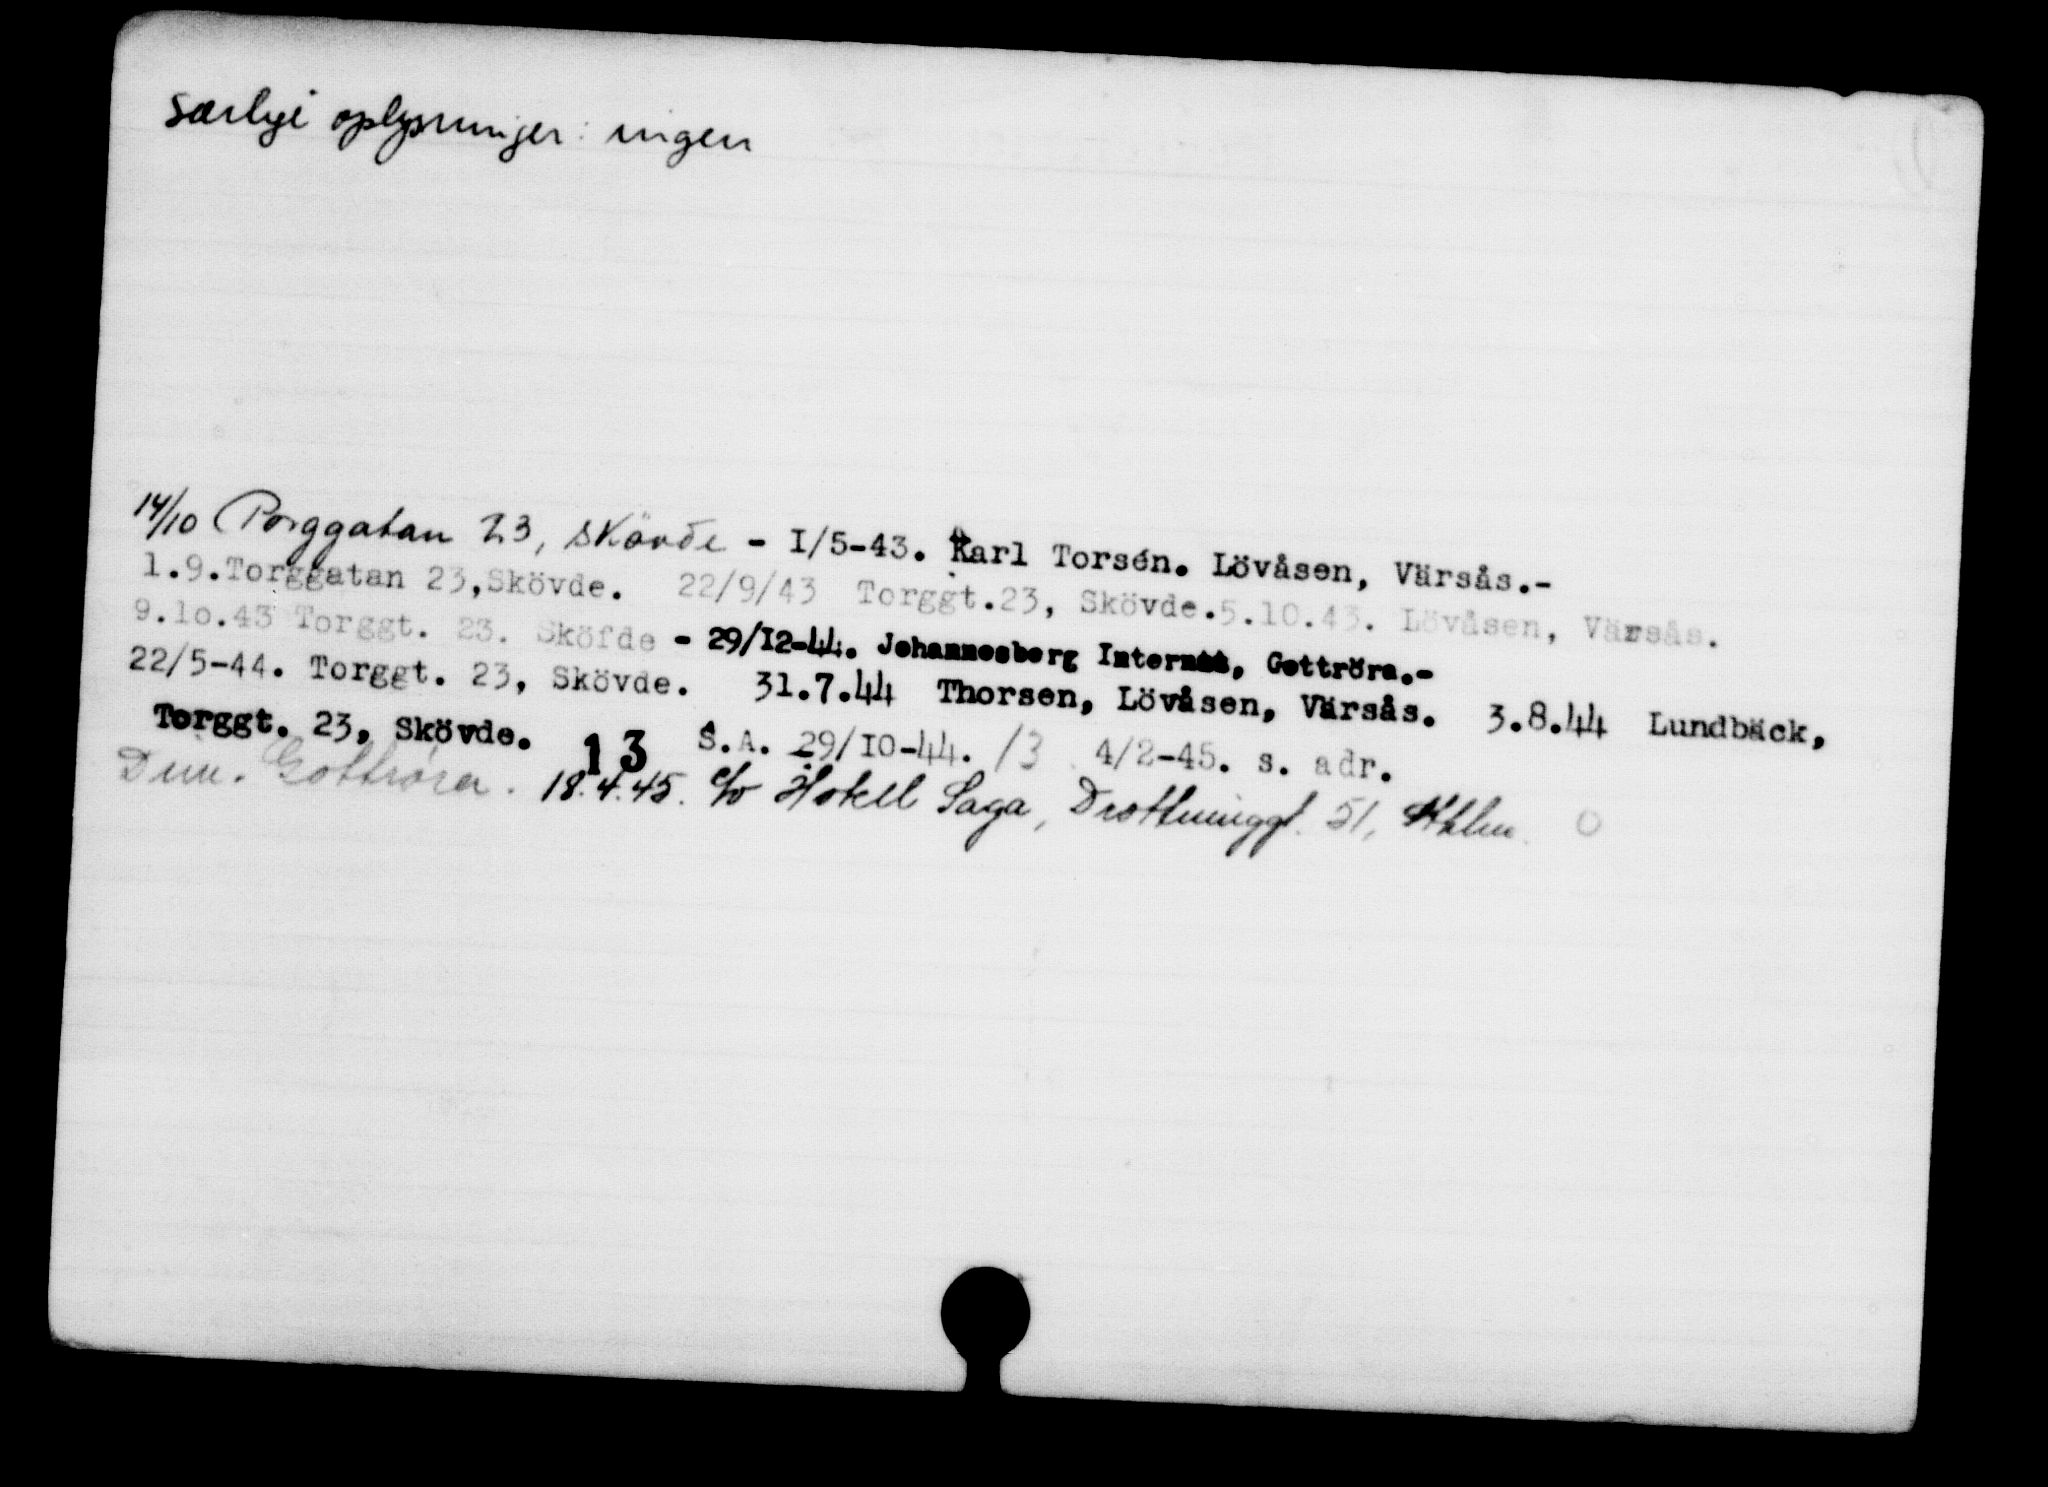 Særlige oplysninger: ingen
14/10 Torggatan 23, Skövde - I/5-43. Karl Torsén. Lövåsen, Värsås.-
1.9.Torggatan 23,Skövde. 22/9/43 Torggt.23, Skövde.5.10.43. Lövåsen, Värsås.
9.1o.43 Torggt. 23. Sköfde - 29/I2-44. Johannesberg Internat, Gottröra.-
22/5-44. Torggt. 23, Skövde. 31.7.44 Thorsen, Lövåsen, Värsås. 3.8.44 Lundbäck,
Torggt. 23, Skövde. 13 S.A. 29/IO-44. /3 4/2-45. s. adr.
Dim. Gottröra. 18.4.45. c/o Hotell Saga, Drottninggt. 51, Sthlm.